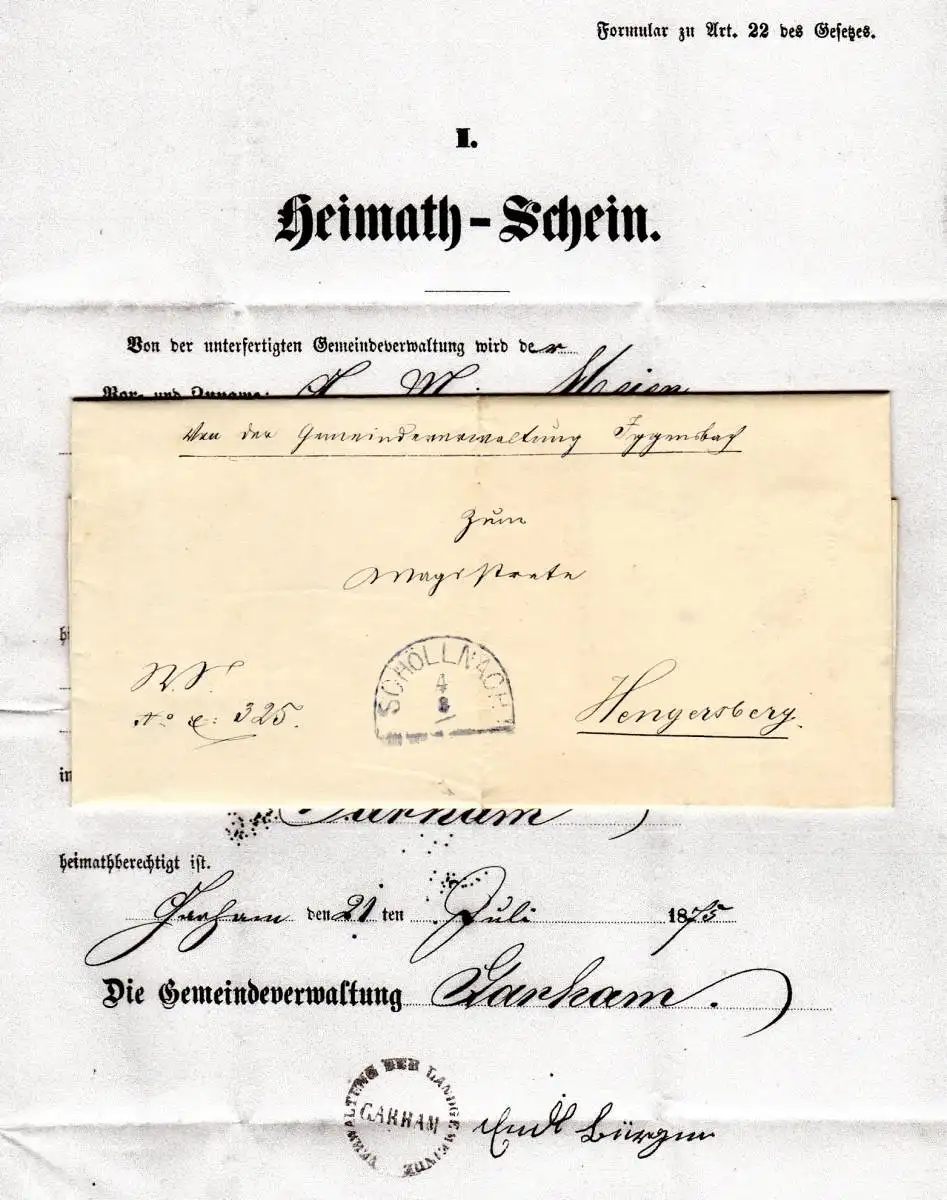 Formular zu Art. 22 des Gesetzes.
I.
Heimath-Schein.
Von der unterfertigten Gemeindeverwaltung wird der
Vor- und Zuname:
Von der Gemeindeverwaltung
zum
Magistrate
SCHÖLLNACH
4
8
No 325.
Hengersberg.
in
Garham
heimathberechtigt ist.
Garham den 21ten Juli 1875
Die Gemeindeverwaltung Garham.
VERWALTUNG DER LANDGEMEINDE
GARHAM
Endl Bürgm